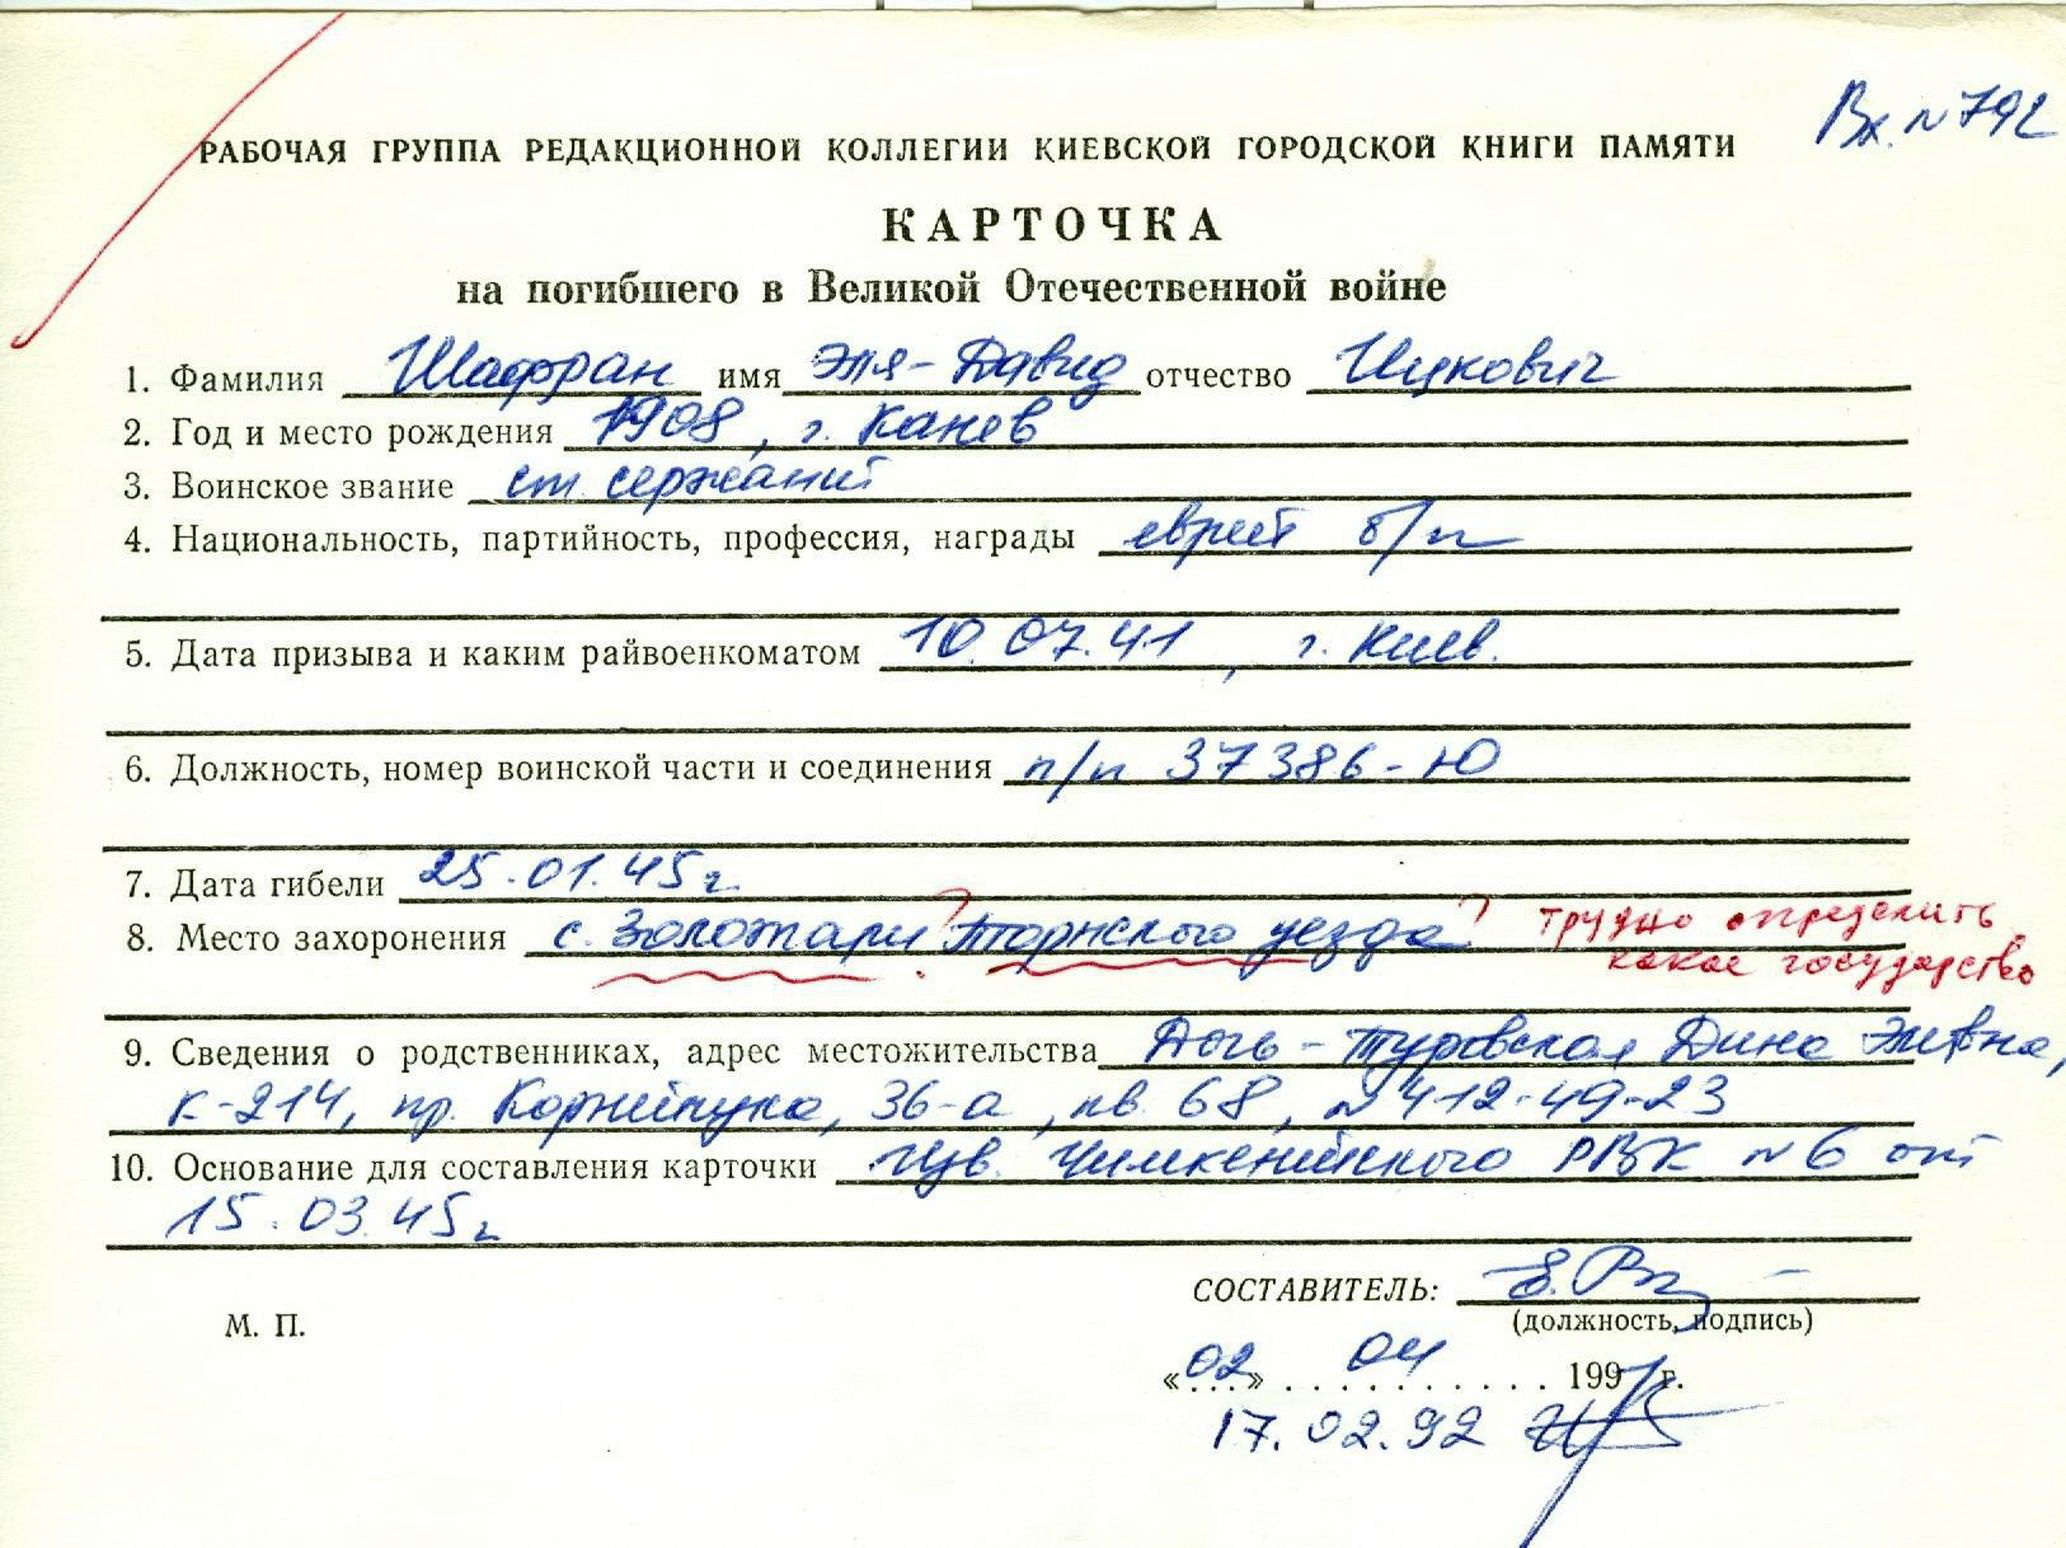 Вх. N 792
РАБОЧАЯ ГРУППА РЕДАКЦИОННОЙ КОЛЛЕГИИ КИЕВСКОЙ ГОРОДСКОЙ КНИГИ ПАМЯТИ
КАРТОЧКА
на погибшего в Великой Отечественной войне
1. Фамилия Шафран имя Эля-Давид отчество Ицкович
2. Год и место рождения 1908, г. Канев
3. Воинское звание ст. сержант
4. Национальность, партийность, профессия, награды еврей б/п
5. Дата призыва и каким райвоенкоматом 10.07.41, г. Киев.
6. Должность, номер воинской части и соединения п/п 37386-Ю
7. Дата гибели 25.01.45г.
8. Место захоронения с. Золотари ? Торнского уезда ? трудно определить
какое государство
9. Сведения о родственниках, адрес местожительства Дочь - Туровская Дина
К-214, пр. Корнейчука, 36-а, кв. 68, N 412-49-23
10. Основание для составления карточки Изв. Чимкентского РВК N 6 от
15.03.45г
СОСТАВИТЕЛЬ:
(должность, подпись)
М. П.
«02» 04 1991 г.
17.02.92